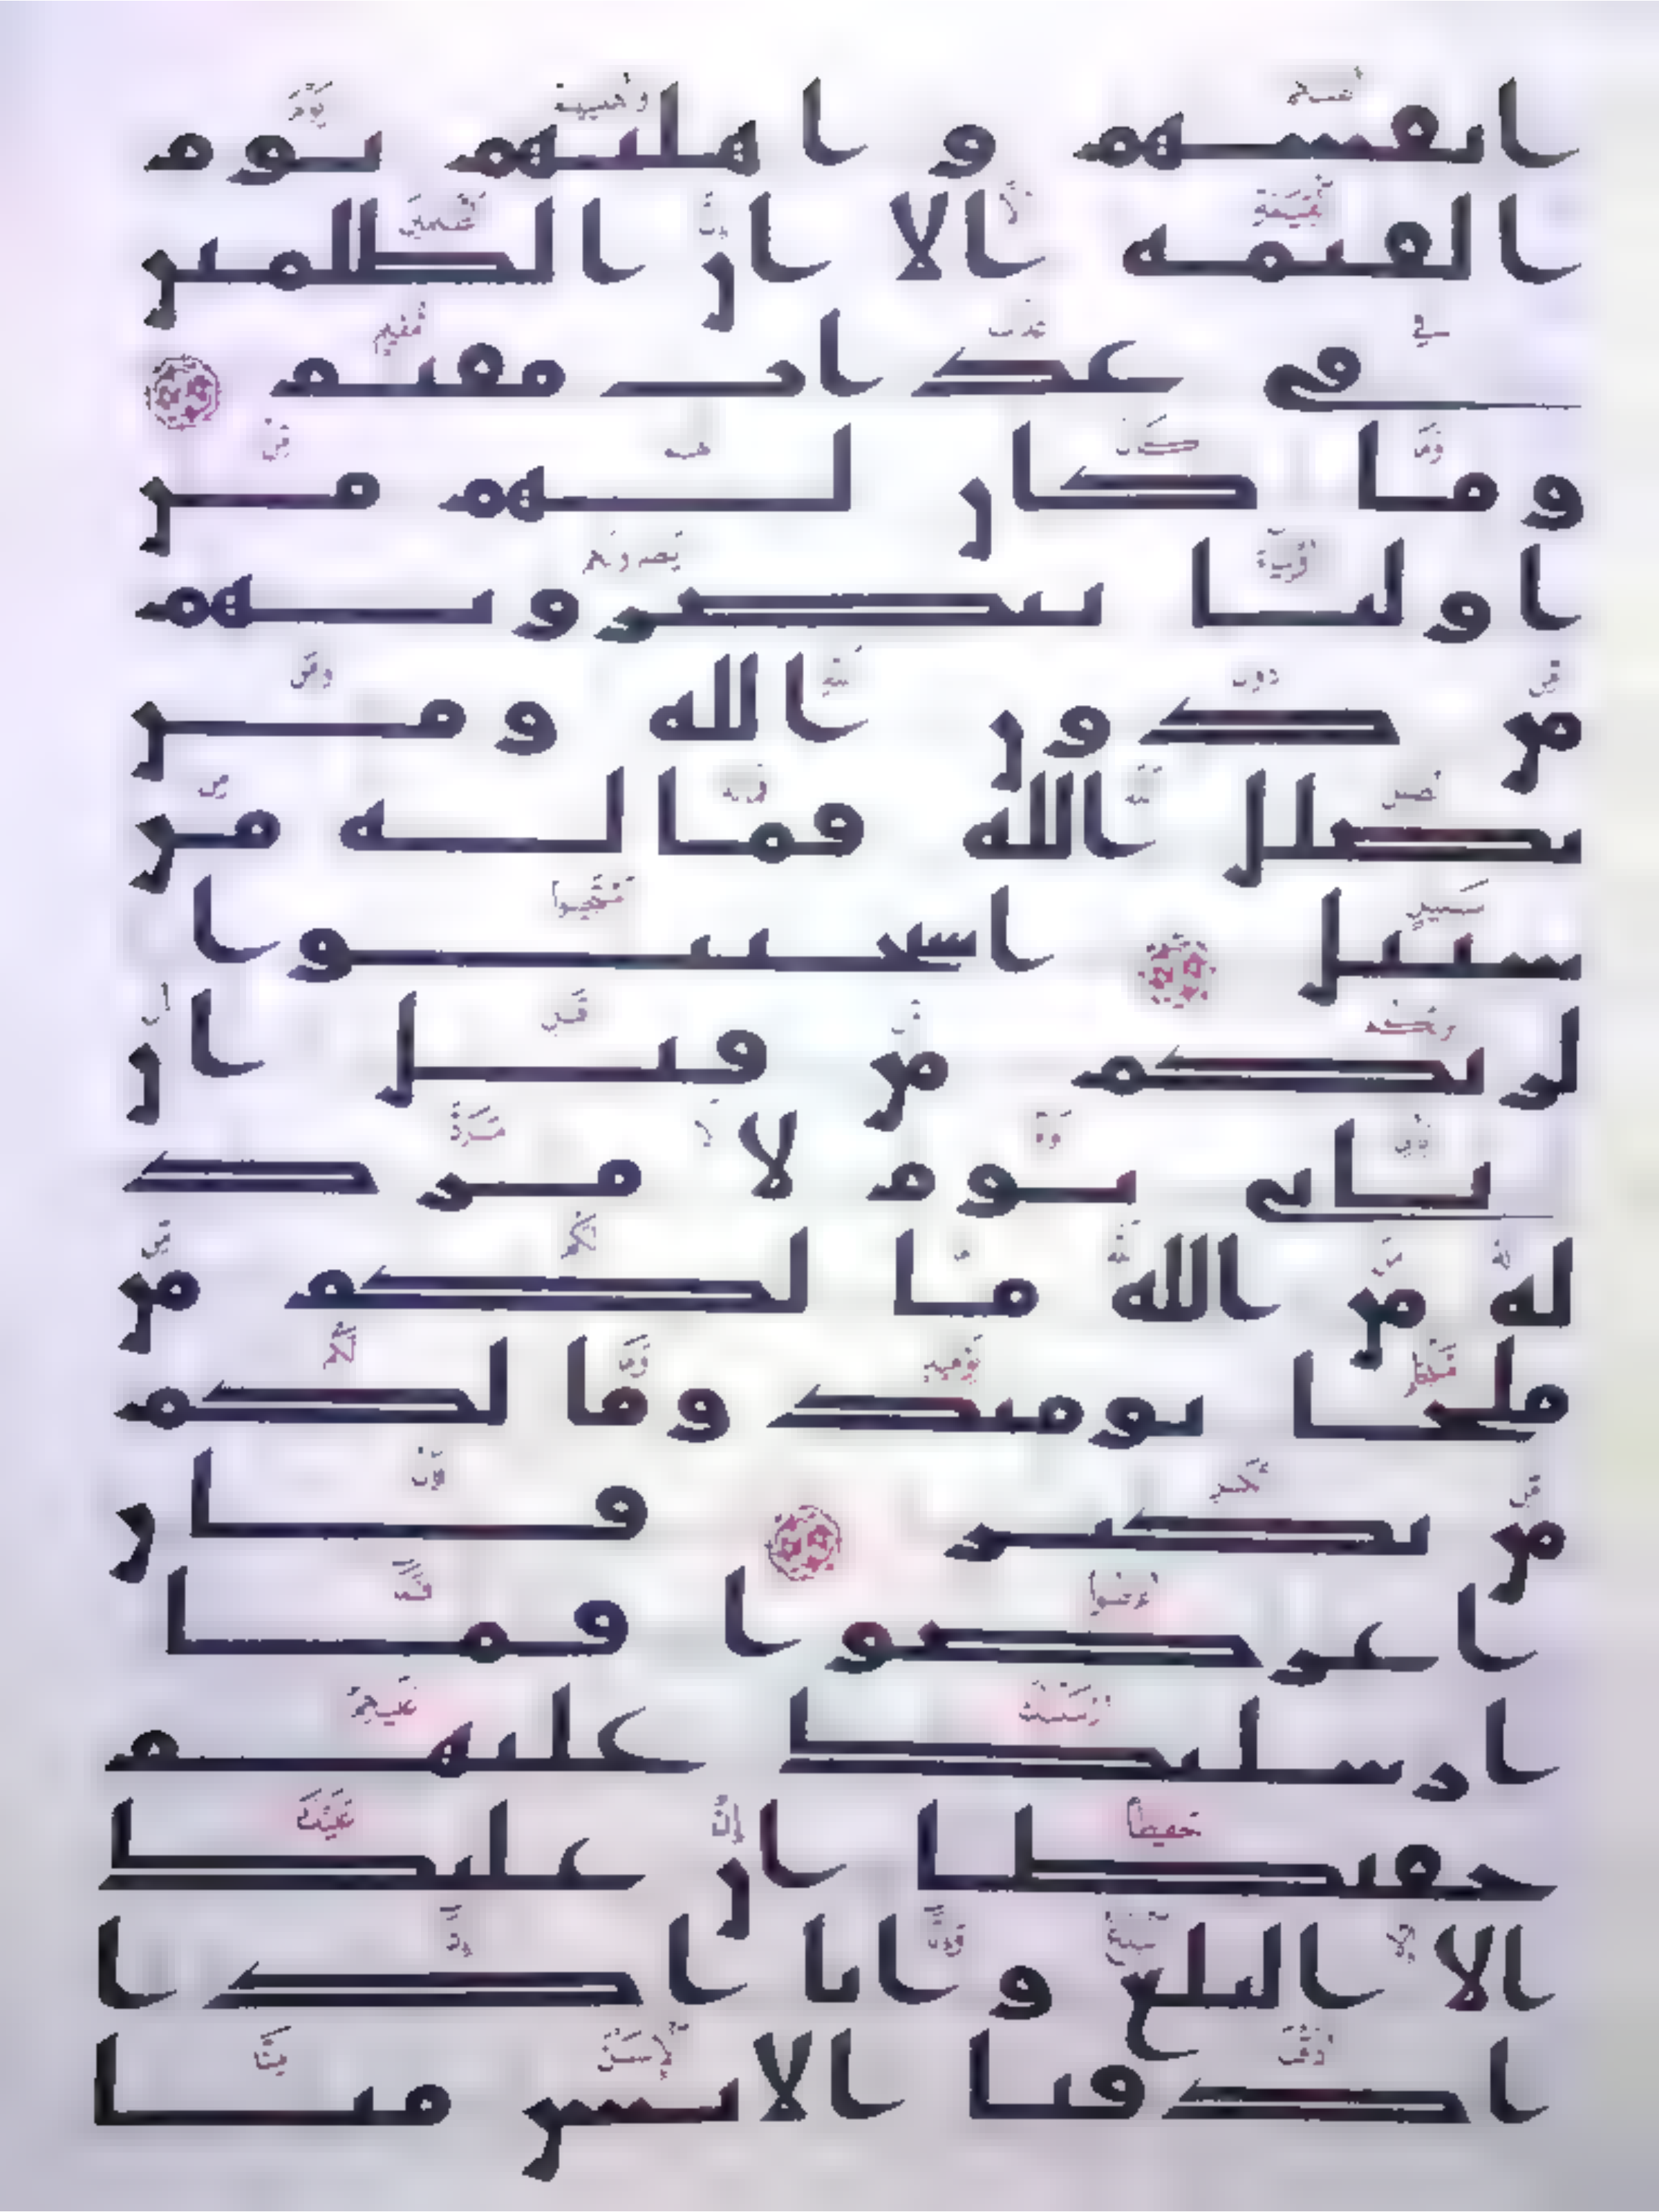 انفسهم و اهليهم يوم
القيمه الا ان الظلمين
في عذاب مقيم
وما كان لهم من
اوليا ينصرونهم
من دون الله ومن
يضلل الله فما له من
سبيل استجيبوا
لربكم من قبل ان
ياتي يوم لا مرد
له من الله ما لكم من
ملجا يوميذ وما لكم
من نكير فان
اعرضوا فما
ارسلنك عليهم
حفيظا ان عليك
الا البلغ وانا اذا
اذقنا الانسن منا